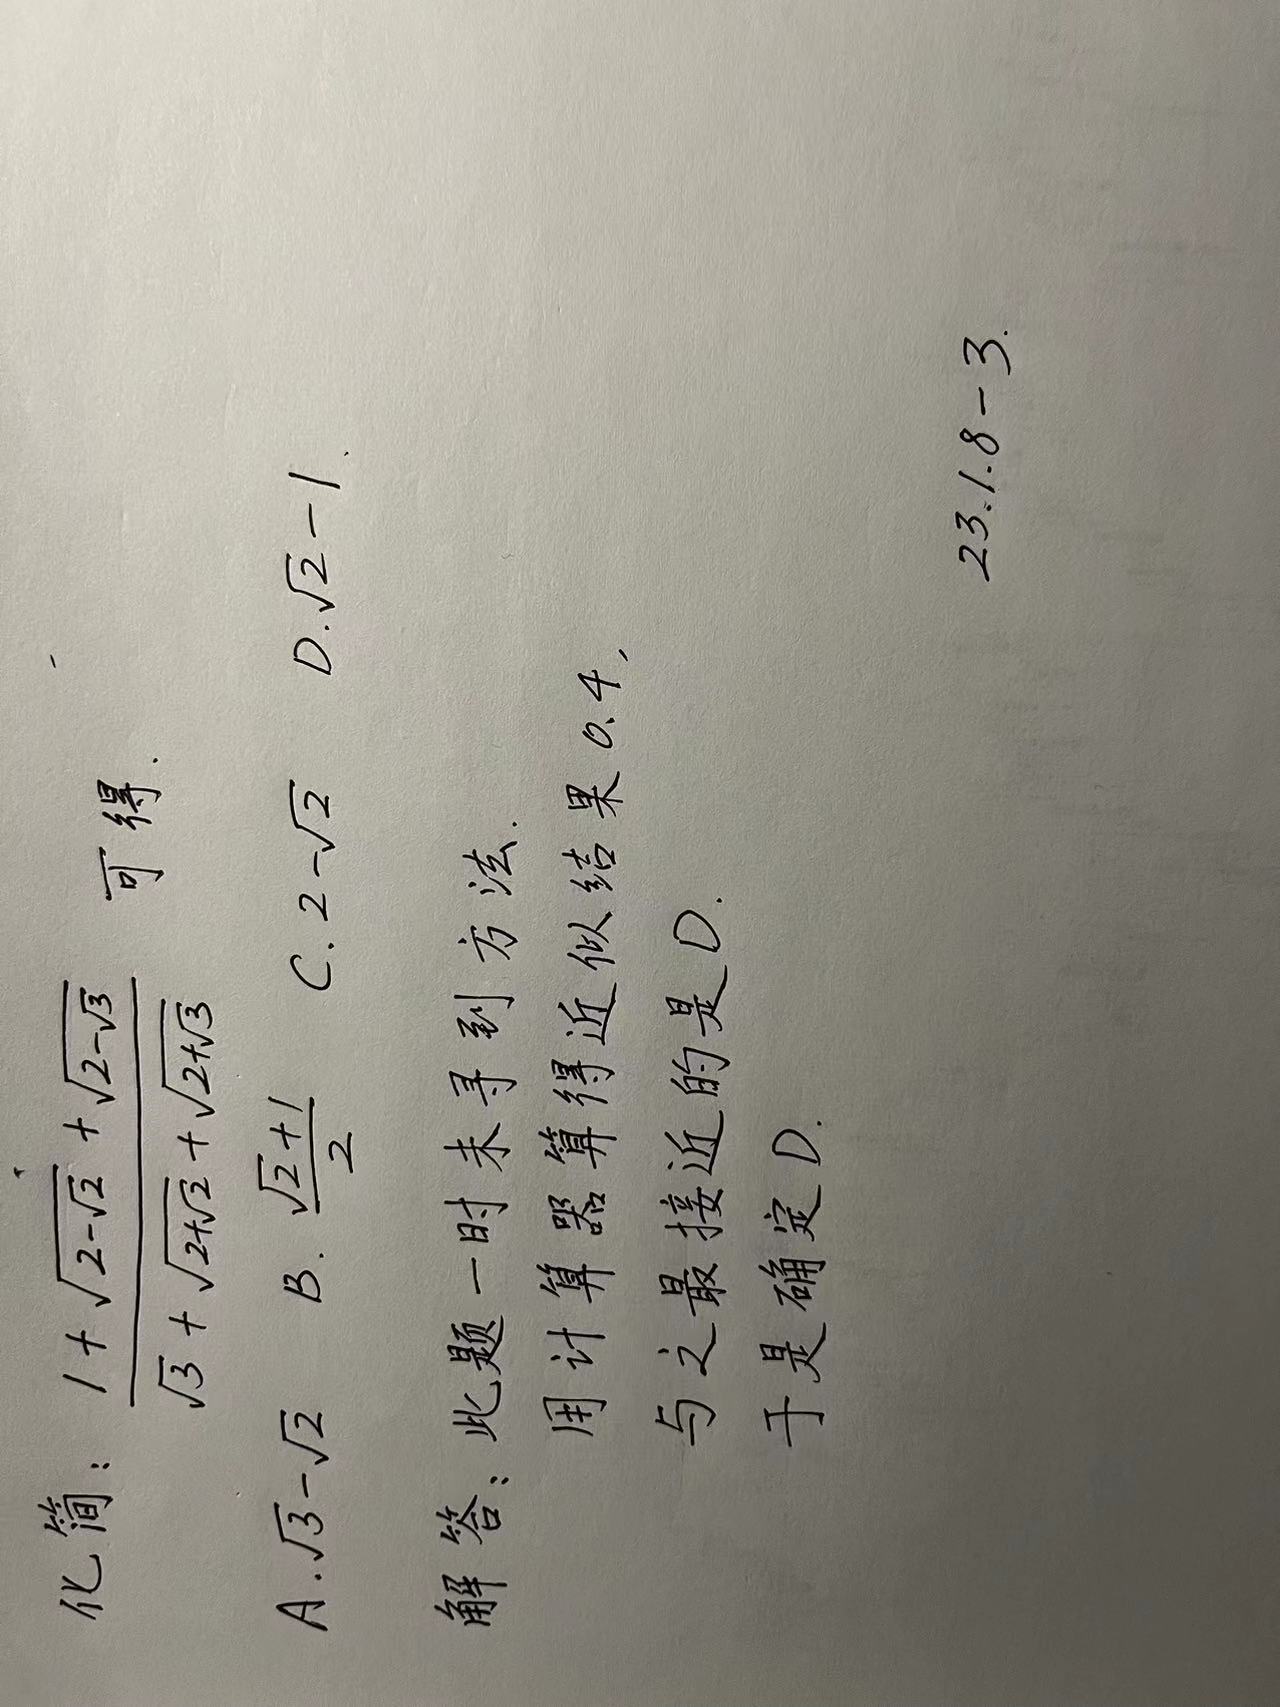 化简: \frac{1+\sqrt{2-\sqrt{2}}+\sqrt{2-\sqrt{3}}}{\sqrt{3}+\sqrt{2+\sqrt{2}}+\sqrt{2+\sqrt{3}}} 可得.
A.√3-√2 B. \frac{\sqrt{2}+1}{2} C. 2-√2 D.√2-1.
解答: 此题一时未寻到方法.
用计算器算得近似结果0.4,
与之最接近的是D.
于是确定D.
23.1.8-3.